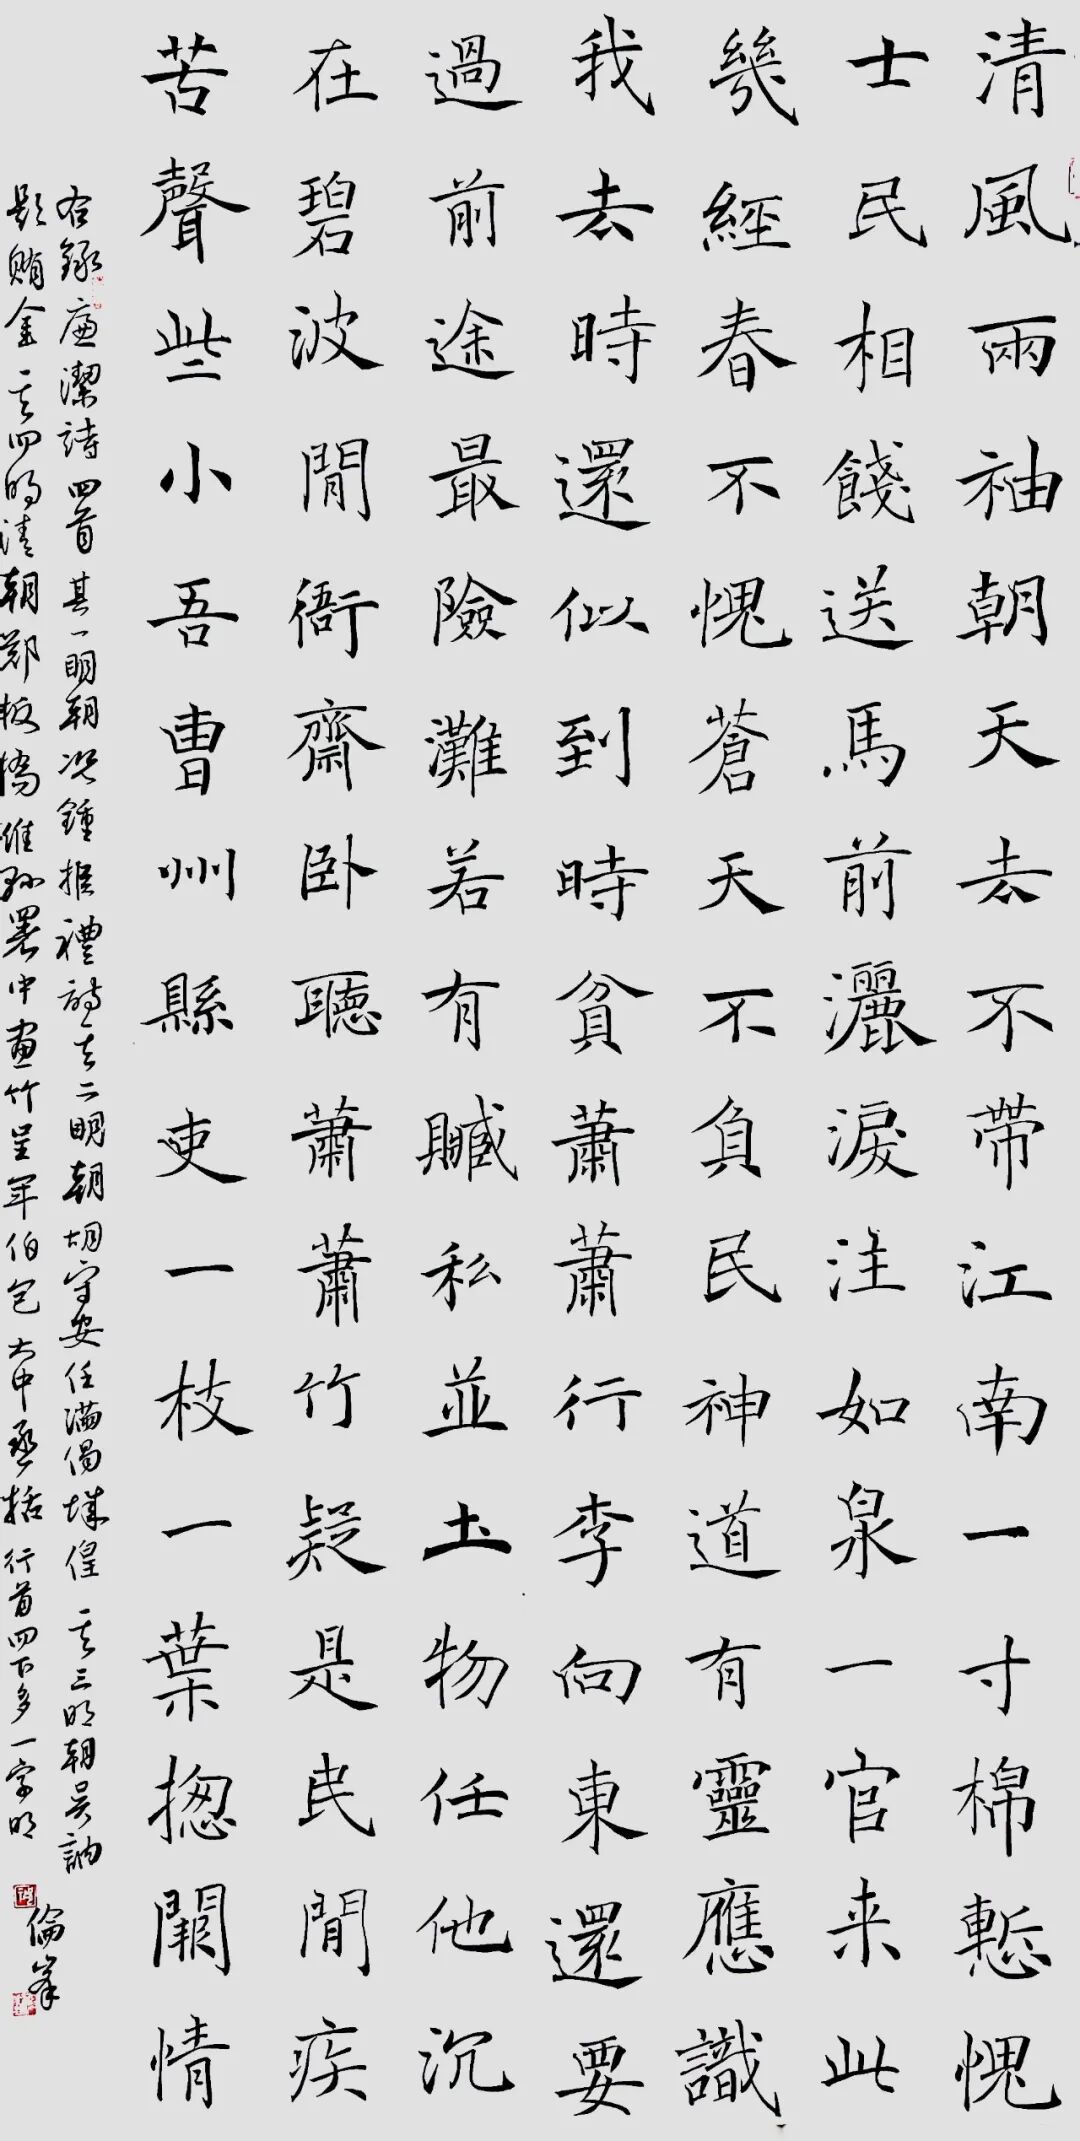 清風兩袖朝天去不帶江南一寸棉慙愧
士民相餞送馬前灑淚注如泉一官来此
幾經春不愧蒼天不負民神道有靈應識
我去時還似到時貧蕭蕭行李向東還要
過前途最險灘若有贓私並土物任他沉
在碧波間衙齋卧聽蕭蕭竹疑是民間疾
苦聲些小吾曹州縣吏一枝一葉捴關情
右錄廉潔詩四首其一明朝况鍾拒禮詩其二明朝胡守安任滿謁城隍其三明朝吳訥
題賄金其四清朝鄭板橋濰縣署中畫竹呈年伯包大中丞括行首四下多一字明
倫峯